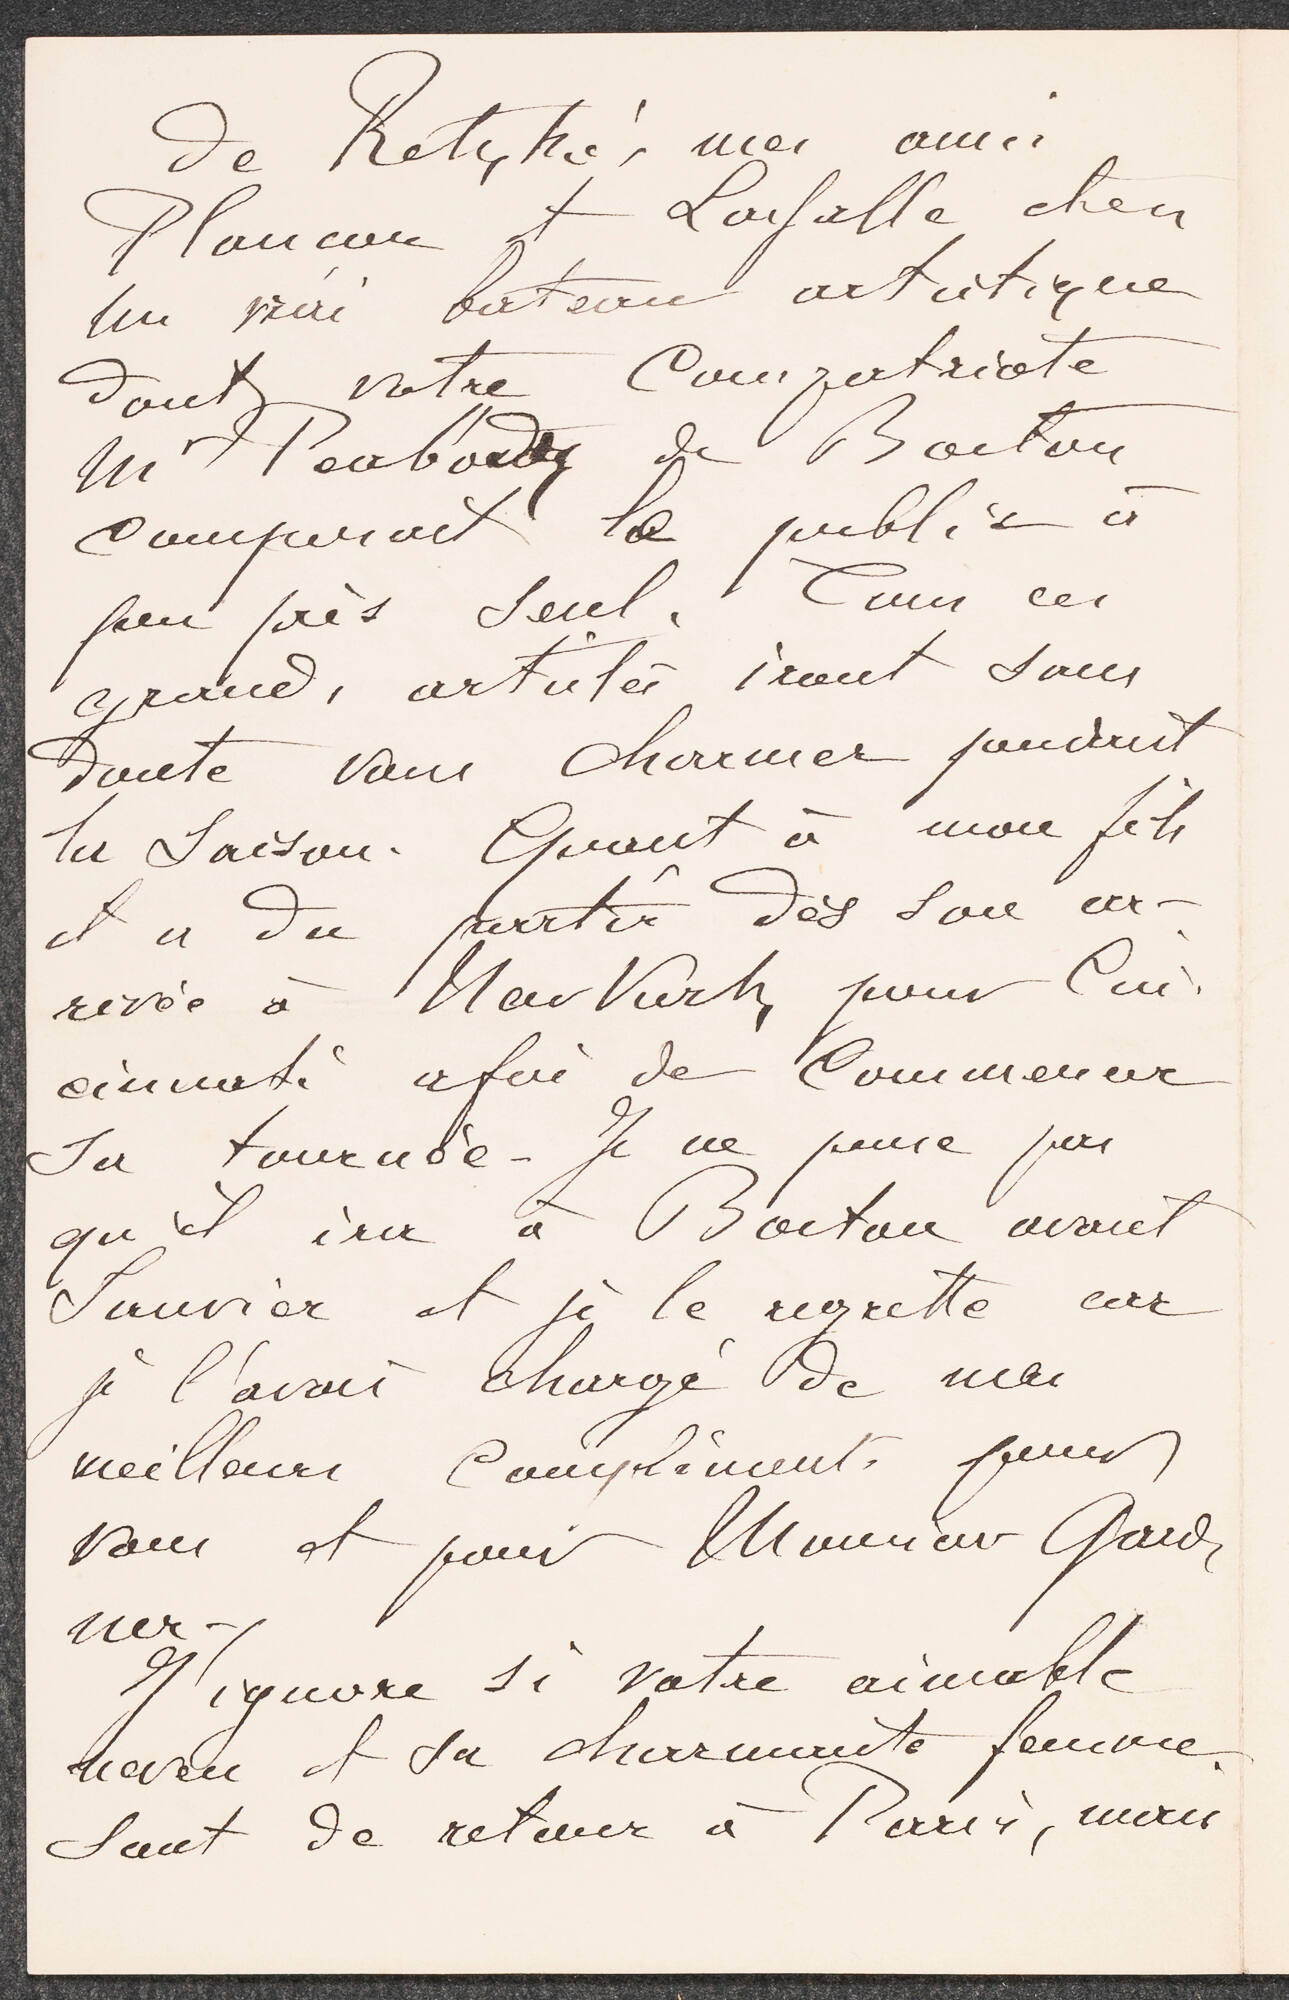 de Retzké, mes amis
Plançon et Lassalle
un vrai bateau artistique
dont votre Compatriote
Mr Peabody de Boston
composait le public à
peu près seul. Tous ces
grands artistes iront sans
doute vous charmer pendant
la Saison. Quant à mon fils
il a du partir dès son ar-
rivée à New York, pour Cin-
cinnati afin de Commencer
sa tournée - Je ne pense pas
qu'il ira à Boston avant
Janvier et je le regrette car
je l'avais chargé de mes
meilleurs Compliments pour
vous et pour Monsieur Gard,
ner -
J'ignore si votre aimable
neveu et sa charmante femme
sont de retour à Paris, mais